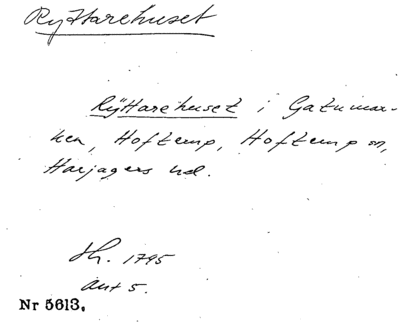 Ryttarehuset
Rÿttarehuset i Gatumar-
ken, Hofterup, Hofterup sn,
Harjagers hd.
Sh. 1795
akt 5.
Nr 5613.